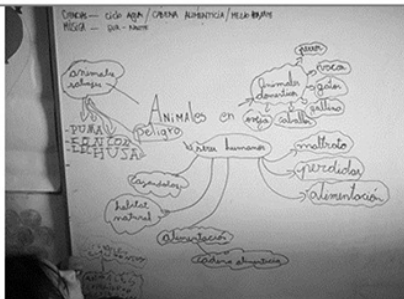 CIENCIAS — ciclo AGUA / CADENA ALIMENTICIA / MEDIO AMBIENTE
MÚSICA —
animales
salvajes
- PUMA
- CONDOR
- LECHUSA
ANIMALES en
peligro
Animales
domesticos
perros
vacas
gatos
gallina
caballos
oveja
seres humanos
maltrato
perdidas
alimentación
Cazandolos
habitat
natural
alimentación
cadena alimenticia